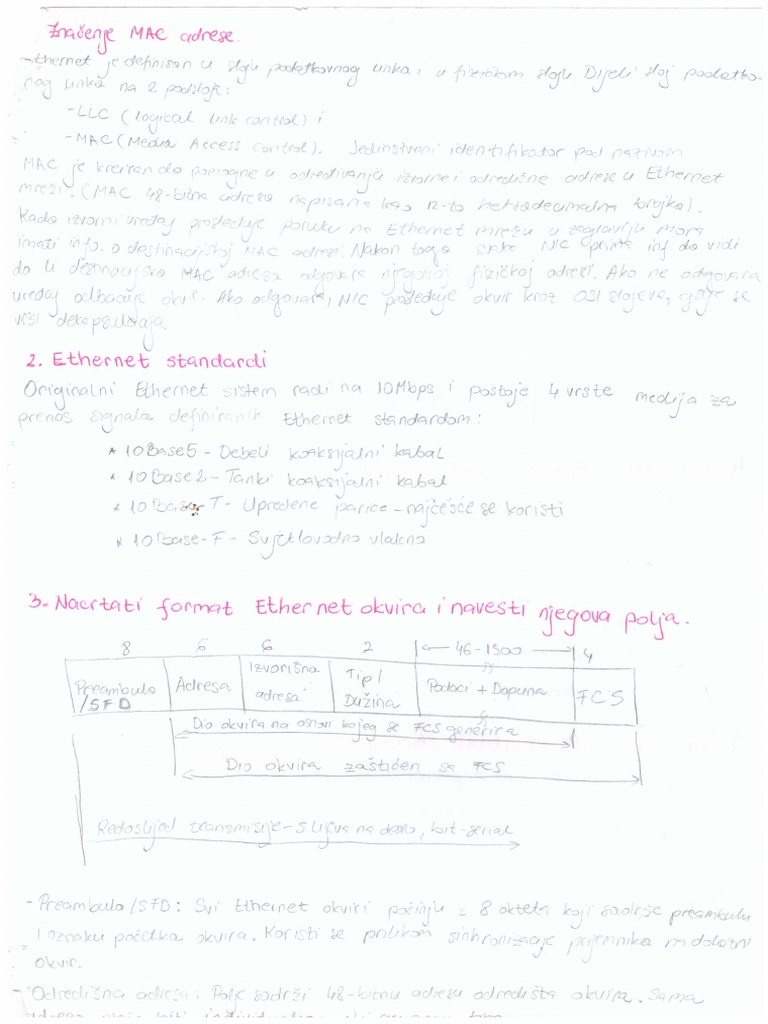 Značenje MAC adrese.
-Ethernet je definisan u sloju podatkovnog linka i u fizičkom sloju. Dijeli sloj podatkov-
nog linka na 2 podsloja:
-LLC (logical link control) i
-MAC (Media Access control). Jedinstveni identifikator pod nazivom
MAC je kreiran da pomogne u određivanju izvorne i odredišne adrese u Ethernet
mreži. (MAC 48-bitna adresa napisana kao 12-to heksadecimalna brojka).
Kada izvorni uređaj prosleđuje poruku na Ethernet mrežu u zaglavlju mora
imati info. o destinacijskoj MAC adresi. Nakon toga svaki NIC prima inf da vidi
da li destinacijska MAC adresa odgovara njegovoj fizičkoj adresi. Ako ne odgovara
uređaj odbacuje okvir. Ako odgovara, NIC prosleđuje okvir kroz OSI slojeve, gdje se
vrši dekapsulacija.
2. Ethernet standardi
Originalni Ethernet sistem radi na 10Mbps i postoje 4 vrste medija za
prenos signala definiranih Ethernet standardom:
* 10Base5 - Debeli koaksijalni kabal
* 10Base2 - Tanki koaksijalni kabal
* 10Base-T - Upredene parice - najčešće se koristi
* 10Base-F - Svjetlovodno vlakno
3. Nacrtati format Ethernet okvira i navesti njegova polja.
8 6 6 2 46-1500 4
Preambula /SFD Adresa Izvorišna adresa Tip/ Dužina Podaci + Dopuna FCS
Dio okvira na osnovi kojeg se FCS generira
Dio okvira zaštićen sa FCS
Redoslijed transmisije - s lijeva na desno, bit-serial
- Preambula /SFD: Svi Ethernet okviri počinju s 8 okteta koji sadrže preambulu
i oznaku početka okvira. Koristi se prilikom sinhronizacije prijemnika na dolazni
okvir.
- Odredišna adresa: Polje sadrži 48-bitnu adresu odredišta okvira. Sama